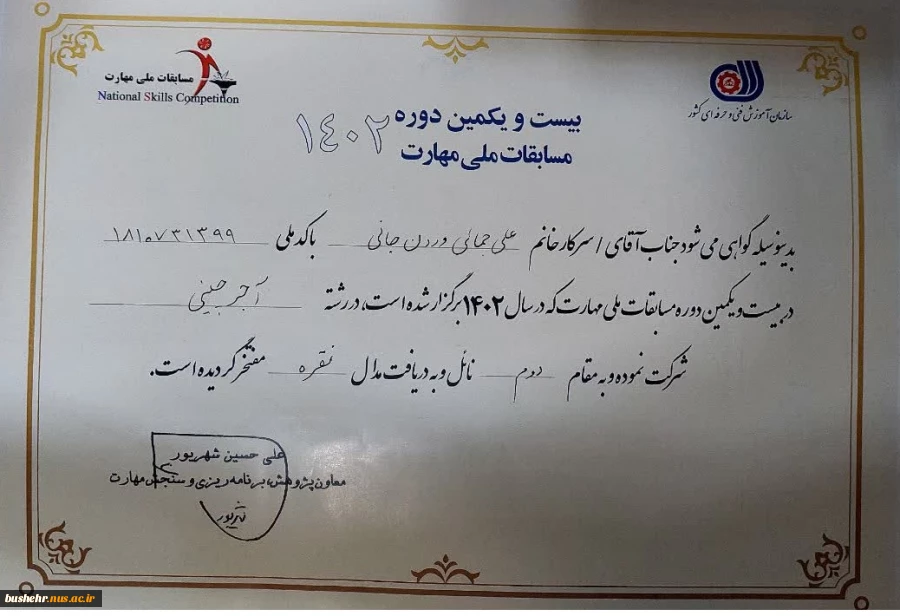 مسابقات ملی مهارت
National Skills Competition
سازمان آموزش فنی و حرفه ای کشور
بیست و یکمین دوره
مسابقات ملی مهارت
۱۴۰۲
بدینوسیله گواهی می شود جناب آقای / سرکار خانم علی جمالی وردن جانی با کد ملی ۱۸۱۰۷۳۱۳۹۹
در بیست و یکمین دوره مسابقات ملی مهارت که در سال ۱۴۰۲ برگزار شده است، در رشته آجرچینی
شرکت نموده و به مقام دوم نائل و به دریافت مدال نقره مفتخر گردیده است.
علی حسین شهریور
معاون پژوهش، برنامه ریزی و سنجش مهارت
شهریور
bushehr.nus.ac.ir